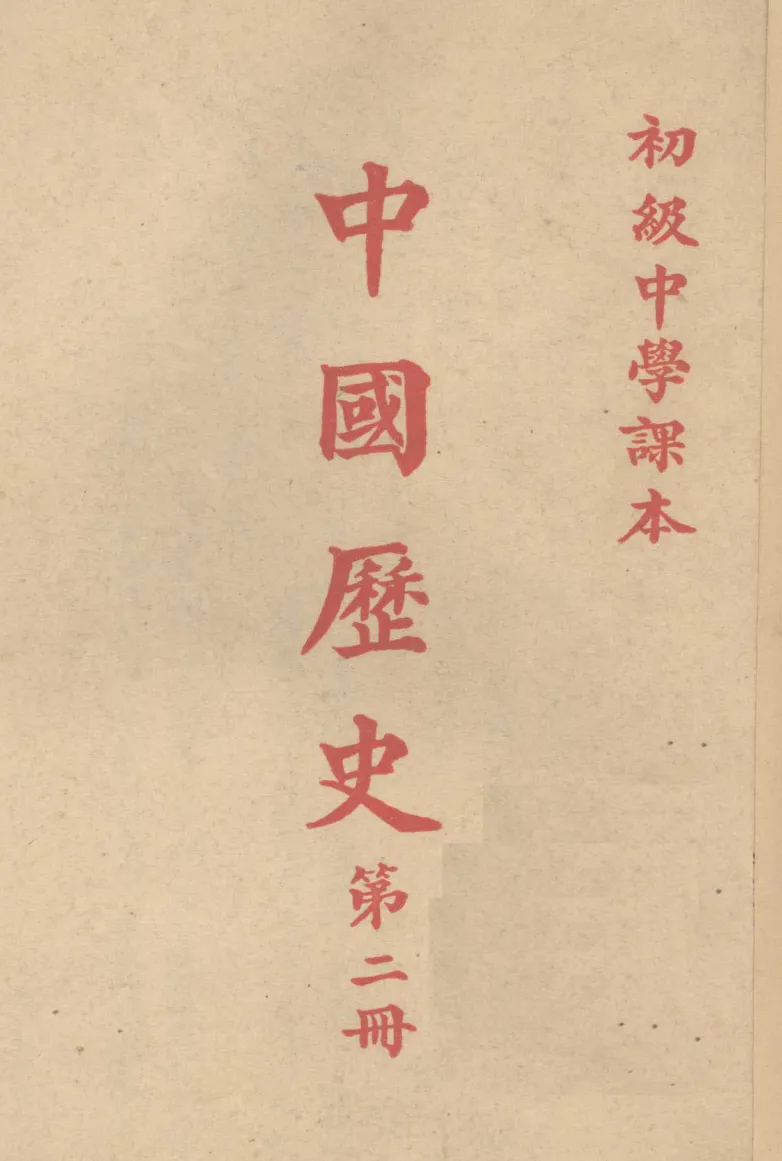 初級中學課本
中國歷史第二冊